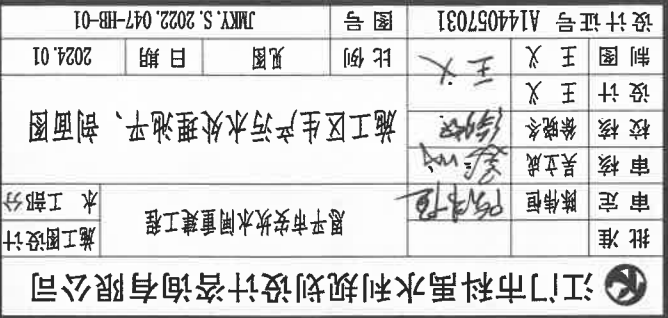 江门市科禹水利规划设计咨询有限公司
批 准
恩平市安扶水闸重建工程
施工图设计
审 定 陈伟恒
水 工部分
审 核 吴立成
施工区生产污水处理池平、剖面图
校 核 徐晓冬
设 计 王 义
制 图 王 义
比 例 见图 日 期 2024.01
设计证号 A144057031 图 号 JMKY.S.2022.047-HB-01